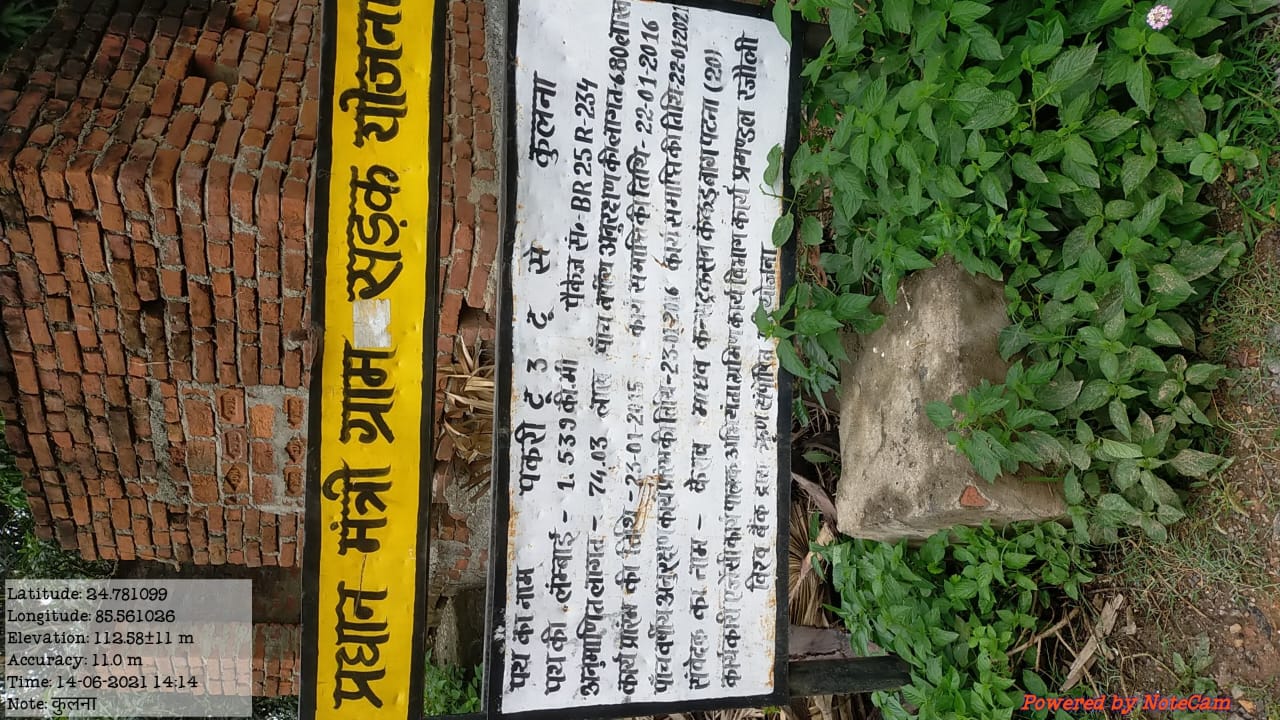 प्रधान मंत्री ग्राम सड़क योजना
पथ का नाम पकरी टू उ टू से कुलना
पथ की लम्बाई - 1.539 की.मी पैकेज सं०- BR 25 R-234
अनुमाणित लागत - 74.03 लाख पाँच वर्षीय अनुरक्षण की लागत-6.80 लाख
कार्य प्रारंभ की तिथि - 23-01-2015 कार्य समाप्ति की तिथि- 22-01-2016
पाँच वर्षीय अनुरक्षण कार्य प्रारम्भ की तिथि-23-01-2016 कार्य समाप्ति की तिथि-22-01-2021
संवेदक का नाम - केशव माधव कन्सट्रक्सन कंकड़बाग पटना (20)
कार्यकारी एजेंसी कार्यपालक अभियंता ग्रामिण कार्य विभाग कार्य प्रमण्डल रजौली
विश्व बैंक द्वारा ऋण संपोषित योजना
Latitude: 24.781099
Longitude: 85.561026
Elevation: 112.58±11 m
Accuracy: 11.0 m
Time: 14-06-2021 14:14
Note: कुलना
Powered by NoteCam